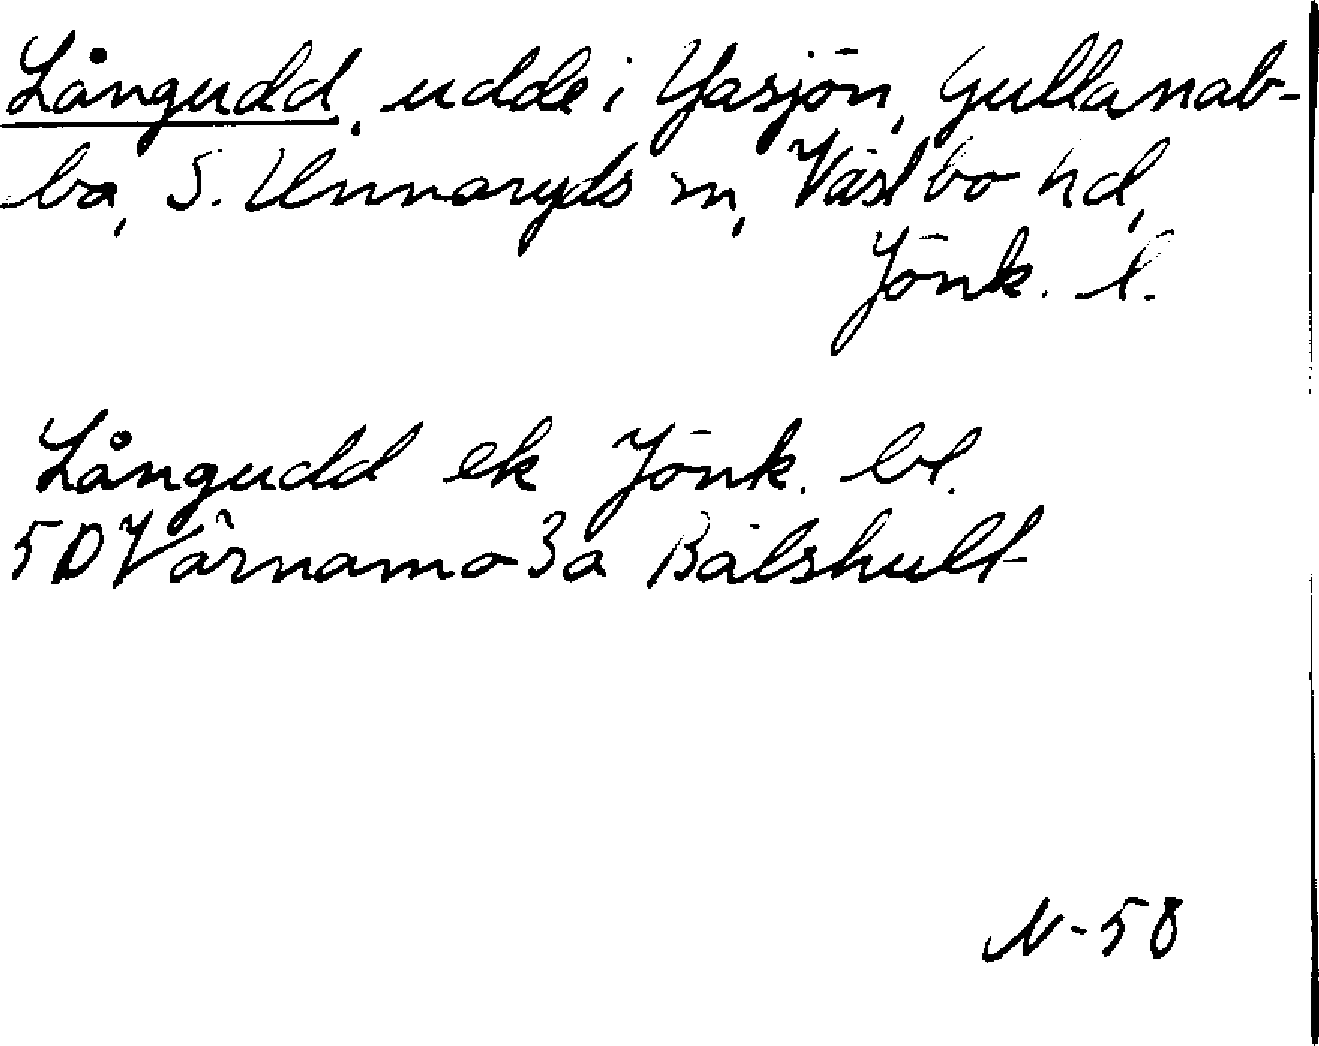 Långudd, udde i Yasjön, Gullanab-
bo, S. Unnaryds sn, Västbo hd,
Jönk. l.
Långudd ek Jönk. bl.
5D Värnamo 3a Bälshult
N-58